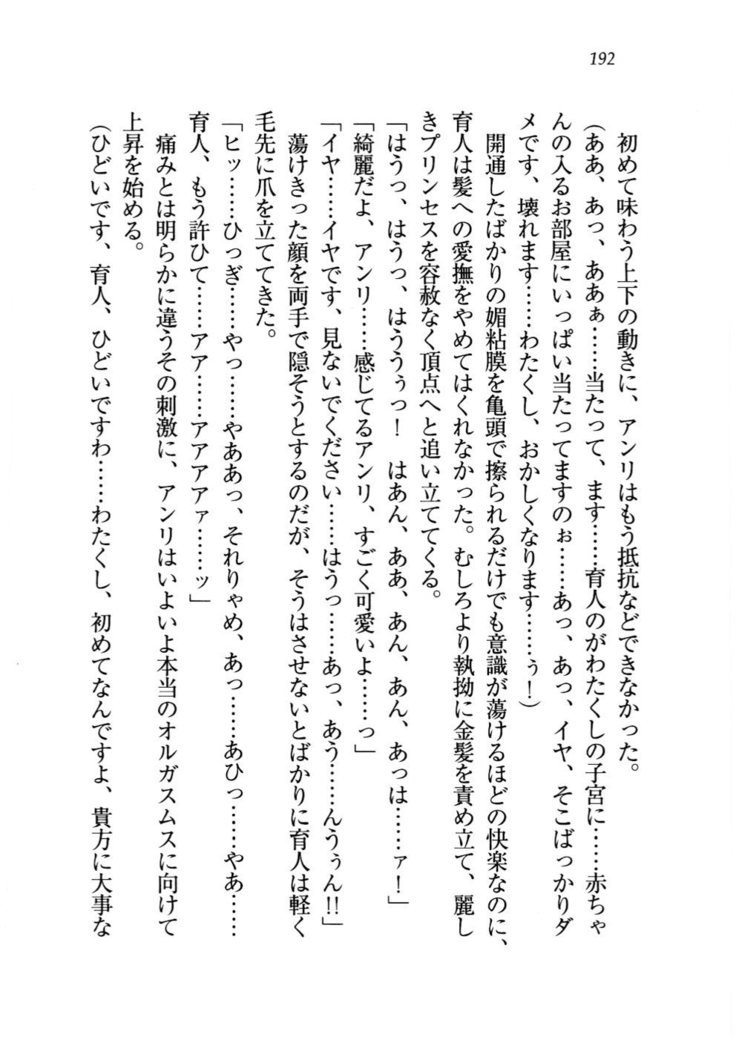 192
初めて味わう上下の動きに、アンリはもう抵抗などできなかった。
（ああ、あっ、ああぁ……当たって、ます……育人のがわたくしの子宮に……赤ちゃ
んの入るお部屋にいっぱい当たってますのぉ……あっ、あっ、イヤ、そこばっかりダ
メです、壊れます……わたくし、おかしくなります……ぅ！）
開通したばかりの媚粘膜を亀頭で擦られるだけでも意識が蕩けるほどの快楽なのに、
育人は髪への愛撫をやめてはくれなかった。むしろより執拗に金髪を責め立て、麗し
きプリンセスを容赦なく頂点へと追い立ててくる。
「はうっ、はうっ、はううぅっ！　はあん、ああ、あん、あん、あっは……ァ！」
「綺麗だよ、アンリ……感じてるアンリ、すごく可愛いよ……っ」
「イヤ……イヤです、見ないでください……はうっ……あっ、あう……んうぅん!!」
蕩けきった顔を両手で隠そうとするのだが、そうはさせないとばかりに育人は軽く
毛先に爪を立ててきた。
「ヒッ……ひっぎ……やっ……やああっ、それりゃめ、あっ……あひっ……やあ……
育人、もう許ひて……アア……アアアァ……ッ」
痛みとは明らかに違うその刺激に、アンリはいよいよ本当のオルガスムスに向けて
上昇を始める。
（ひどいです、育人、ひどいですわ……わたくし、初めてなんですよ、貴方に大事な